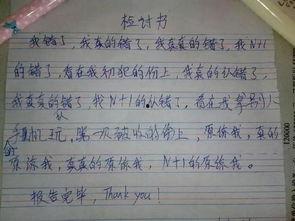 检讨书
我错了，我真的错了，我真真的错了，我N+1
的错了，看在我初犯的份上，我真的认错了，
我真真的认错了，我N+1的认错了，看在我拿别人
手机玩，第一次被收的份上，原谅我，真的
原谅我，真真的原谅我，N+1的原谅我。
报告完毕，Thank you！